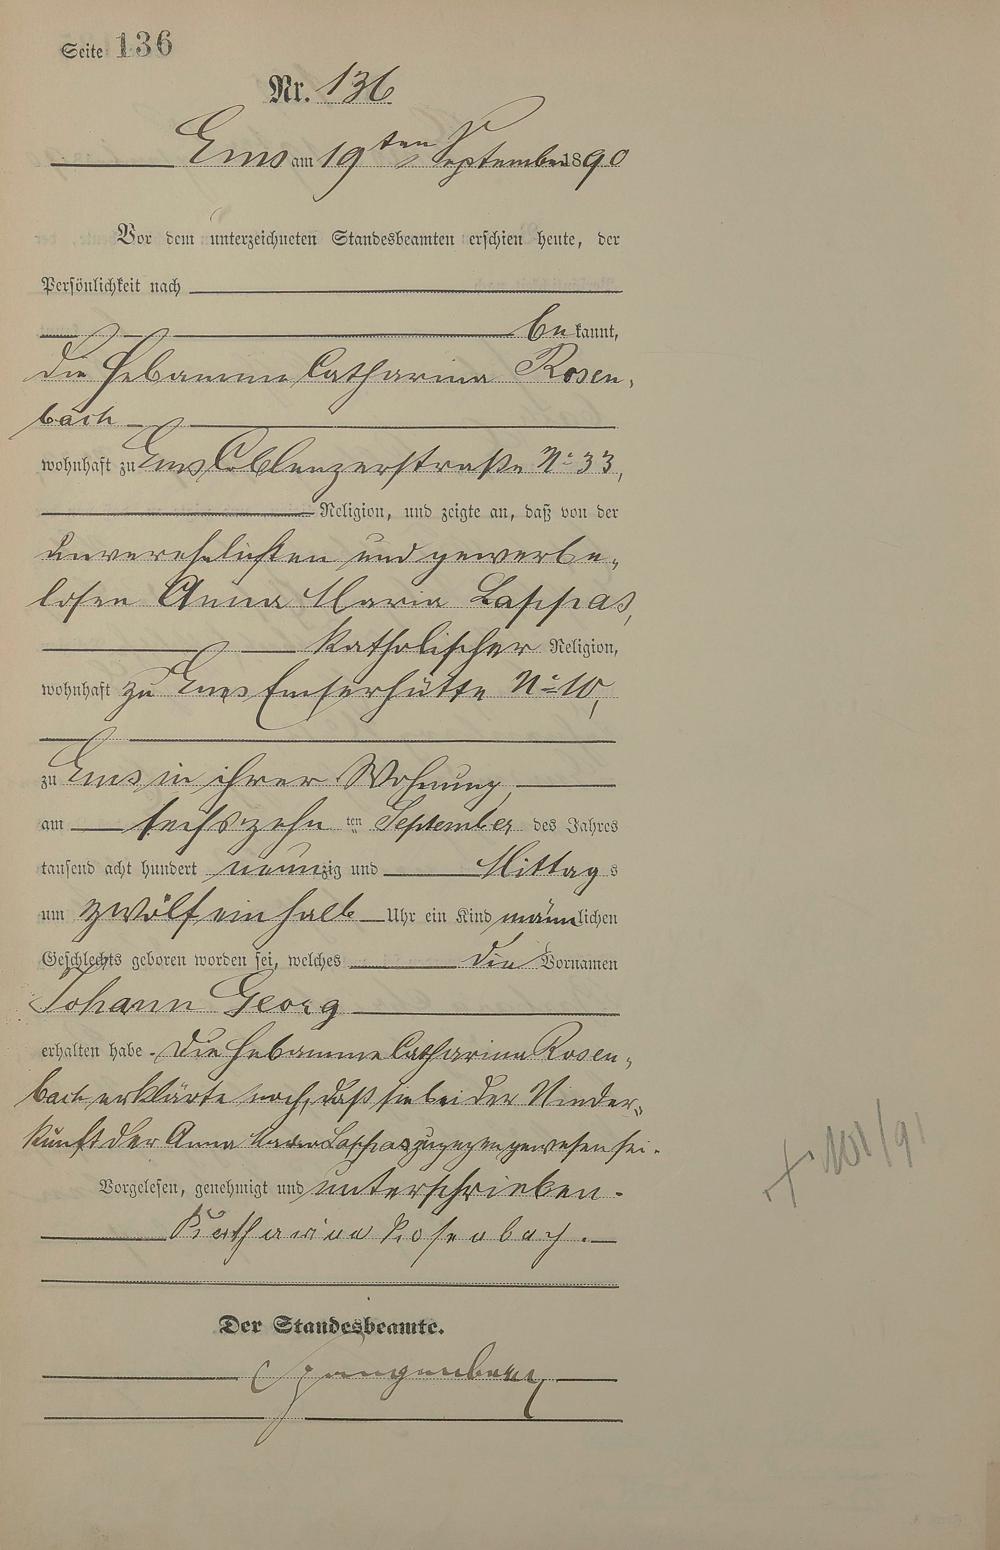 Seite 136
Nr. 136
Ems am 19ten September 1890
Vor dem unterzeichneten Standesbeamten erschien heute, der
Persönlichkeit nach
bekannt,
die Hebamme Catharina Rosen-
bach
wohnhaft zu Ems Coblenzerstraße No 33,
Religion, und zeigte an, daß von der
unverehelichten und gewerbe-
losen Anna Maria Lappas,
katholischer Religion,
wohnhaft zu Ems Emserhütte No 10,
zu Ems in ihrer Wohnung,
am sechszehnten September des Jahres
tausend acht hundert neunzig und Mittags
um zwölf ein halb Uhr ein Kind männlichen
Geschlechts geboren worden sei, welches die Vornamen
Johann Georg
erhalten habe. Die Hebamme Catharina Rosen-
bach erklärte noch, daß sie bei der Nieder-
kunft der Anna Maria Lappas zugegen gewesen sei.
Vorgelesen, genehmigt und unterschrieben.
Katharina Rosenbach.
+ 101/91
Der Standesbeamte.
Spangenberg